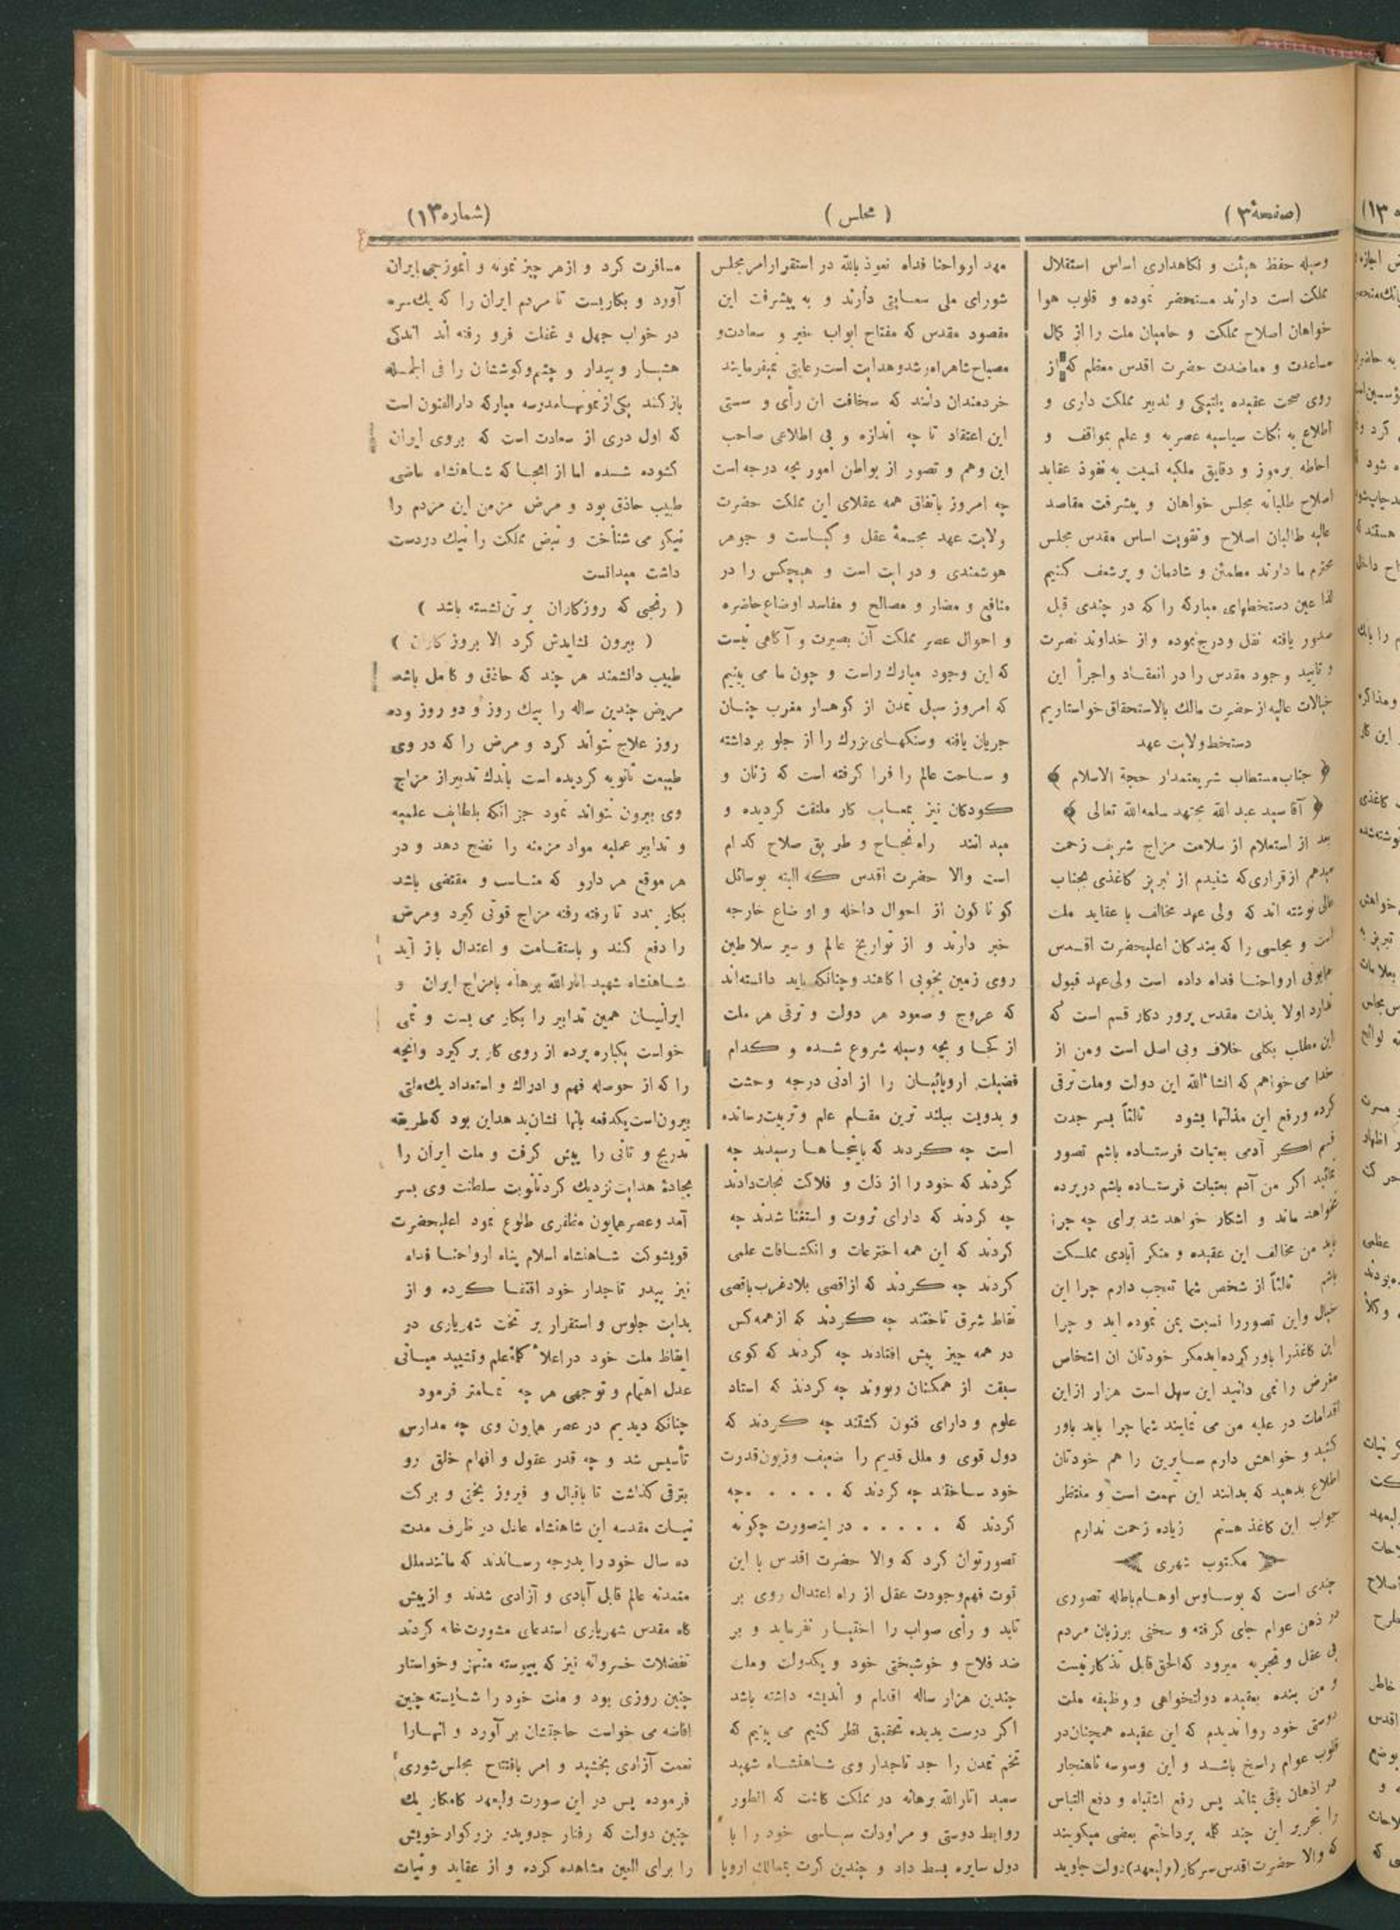 (صفحهٔ ۳)
(مجلس)
(شماره ۱۳)
وسیله حفظ هیئت و نکاهداری اساس استقلال
مملکت است دارند مستحضر نموده و قلوب هوا
خواهان اصلاح مملکت و حامیان ملت را از کمال
مساعدت و معاضدت حضرت اقدس معظم که از
روی صحت عقیده پلتیکی و تدبیر مملکت داری و
اطلاع به نکات سیاسیه عصریه و علم بمواقف و
احاطه برموز و دقایق ملکیه نسبت به نفوذ عقاید
اصلاح طلبانه مجلس خواهان و پیشرفت مقاصد
عالیه طالبان اصلاح و تقویت اساس مقدس مجلس
محترم ما دارند مطمئن و شادمان و پرشعف کنیم
لذا عین دستخطهای مبارکه را که در چندی قبل
صدور یافته نقل و درج نموده و از خداوند نصرت
و تایید وجود مقدس را در انعقاد واجرأ این
خیالات عالیه از حضرت مالک بالاستحقاق خواستاریم
دستخط ولایت عهد
﴿ جناب مستطاب شریعتمدار حجة الاسلام ﴾
﴿ آقا سید عبد الله مجتهد سلمه‌الله تعالی ﴾
بعد از استعلام از سلامت مزاج شریف زحمت
میدهم از قراری که شنیدم از تبریز کاغذی بجناب
عالی نوشته اند که ولی عهد مخالف با عقاید ملت
است و مجلسی را که بندکان اعلیحضرت اقدس
همایونی ارواحنا فداه داده است ولی عهد قبول
ندارد اولا بذات مقدس پرور دکار قسم است که
این مطلب بکلی خلاف وبی اصل است ومن از
خدا می خواهم که انشا ٔالله این دولت وملت ترقی
کرده ورفع این مذلتها بشود ثالثاً بسر جدت
قسم اکر آدمی بعتبات فرستاده باشم تصور
نمائید اکر من آدم بعتبات فرستاده باشم درپرده
نخواهد ماند و اشکار خواهد شد برای چه چرا
باید من مخالف این عقیده و منکر آبادی مملکت
باشم ثالثاً از شخص شما تعجب دارم چرا این
خیال واین تصوررا نسبت بمن نموده اید و چرا
این کاغذرا باور کرده‌اید مکر خودتان ان اشخاص
مغرض را نمی دانید این سهل است هزار ازاین
اقدامات در علیه من می نمایند شما چرا باید باور
کنید و خواهش دارم سایرین را هم خودتان
اطلاع بدهید که بدانند این تهمت است و منتظر
جواب این کاغذ هستم زیاده زحمت ندارم
مکتوب شهری
چندی است که بوساوس اوهام باطله تصوری
در ذهن عوام جای کرفته و سخنی برزبان مردم
بی عقل و تجربه میرود که الحق قابل تذکار نیست
و من بنده بعقیده دولتخواهی و وظیفه ملت
دوستی خود روا ندیدم که این عقیده همچنان در
قلوب عوام راسخ باشد و این وسوسه ناهنجار
در اذهان باقی بماند پس رفع اشتباه و دفع التباس
را بتحریر این چند کله پرداختم بعضی میکویند
که والا حضرت اقدس سرکار (ولیعهد) دولت جاوید
مهد ارواحنا فداه نعوذ بالله در استقرار امر مجلس
شورای ملی سعایتی دارند و به پیشرفت این
مقصود مقدس که مفتاح ابواب خیر و سعادت و
مصباح شاهراه رشد و هدایت است رعایتی نمیفرمایند
خردمندان دانند که سخافت ان رأی و سستی
این اعتقاد تا چه اندازه و بی اطلاعی صاحب
این وهم و تصور از بواطن امور بچه درجه است
چه امروز باتفاق همه عقلای این مملکت حضرت
ولایت عهد مجسمهٔ عقل و کیاست و جوهر
هوشمندی و درایت است و هیچکس را در
منافع و مضار و مصالح و مفاسد اوضاع حاضره
و احوال عصر مملکت آن بصیرت و آکاهی نیست
که این وجود مبارک راست و چون ما می بینیم
که امروز سیل تمدن از کوهسار مغرب چنان
جریان یافته وسنکهای بزرک را از جلو برداشته
و ساحت عالم را فرا کرفته است که زنان و
کودکان نیز بمعایب کار ملتفت کردیده و
میدانند راه نجاح و طریق صلاح کدام
است والا حضرت اقدس که البته بوسائل
کوناکون از احوال داخله و اوضاع خارجه
خبر دارند و از تواریخ عالم و سیر سلاطین
روی زمین بخوبی اکاهند وچنانکه باید دانسته‌اند
که عروج و صعود هر دولت و ترقی هر ملت
از کجا و بچه وسیله شروع شده و کدام
فضیلت اروپائیان را از ادنی درجه وحشت
و بدویت ببلند ترین مقام علم و تربیت رسانده
است چه کردند که باینجاها رسیدند چه
کردند که خود را از ذلت و فلاکت نجات دادند
چه کردند که دارای ثروت و استغنا شدند چه
کردند که این همه اختراعات و انکشافات علمی
کردند چه کردند که از اقصی بلاد غرب باقصی
نقاط شرق تاختند چه کردند که از همه کس
در همه چیز پیش افتادند چه کردند که کوی
سبقت از همکنان ربودند چه کردند که استاد
علوم و دارای فنون کشتند چه کردند که
دول قوی و ملل قدیم را ضعیف وزبون قدرت
خود ساختند چه کردند که . . . . . چه
کردند که . . . . . در اینصورت چکونه
تصورتوان کرد که والا حضرت اقدس با این
قوت فهم وجودت عقل از راه اعتدال روی بر
تابد و رأی صواب را اختیار نفرماید و بر
ضد فلاح و خوشبختی خود و یکدولت وملت
چندین هزار ساله اقدام و اندیشه داشته باشد
اکر درست بدیده تحقیق نظر کنیم می بینیم که
تخم تمدن را جد تاجدار وی شاهنشاه شهید
سعید انارالله برهانه در مملکت کاشت که انطور
روابط دوستی و مراودات سیاسی خود را با
دول سایره بسط داد و چندین کرت بممالک اروپا
مسافرت کرد و ازهر چیز نمونه و انموزجی ایران
آورد و بکاربست تا مردم ایران را که یکسره
در خواب جهل و غفلت فرو رفته اند اندکی
هشیار وبیدار و چشم وکوششان را فی الجمله
باز کند یکی از نمونها مدرسه مبارکه دارالفنون است
که اول دری از سعادت است که بروی ایران
کشوده شده اما از انجا که شاهنشاه ماضی
طبیب حاذق بود و مرض مزمن این مردم را
نیکو می شناخت و نبض مملکت را نیک دردست
داشت میدانست
( رنجی که روزکاران بر تن نشسته باشد )
( بیرون نشایدش کرد الا بروز کاران )
طبیب دانشمند هر چند که حاذق و کامل باشد
مریض چندین ساله را بیک روز و دو روز وده
روز علاج نتواند کرد و مرض را که در وی
طبیعت ثانویه کردیده است باندک تدبیر از مزاج
وی بیرون نتواند نمود جز انکه بلطایف علمیه
و تدابیر عملیه مواد مزمنه را نضج دهد و در
هر موقع هر دارو که مناسب و مقتضی باشد
بکار بندد تا رفته رفته مزاج قوتی کیرد ومرض
را دفع کند و باستقامت و اعتدال باز آید
شاهنشاه شهید انارالله برهانه بامزاج ایران و
ایرانیان همین تدابیر را بکار می بست و نمی
خواست یکباره پرده از روی کار بر کیرد وانچه
را که از حوصله فهم و ادراک و استعداد یک ملتی
بیرون است یکدفعه بانها نشان بدهد این بود که طریقه
تدریج و تانی را پیش کرفت و ملت ایران را
بجادهٔ هدایت نزدیک کرد تا نوبت سلطنت وی بسر
آمد وعصر همایون مظفری طلوع نمود اعلیحضرت
قویشوکت شاهنشاه اسلام پناه ارواحنا فداه
نیز بپدر تاجدار خود اقتفا کرده و از
بدایت جلوس و استقرار بر تخت شهریاری در
ایقاظ ملت خود در اعلاٴ کلمهٔ علم و تشیید مبانی
عدل اهتمام و توجهی هر چه تمامتر فرمود
چنانکه دیدیم در عصر همایون وی چه مدارس
تأسیس شد و چه قدر عقول و افهام خلق رو
بترقی کذاشت تا باقبال و فیروز بختی و برکت
نیات مقدسه این شاهنشاه عادل در ظرف مدت
ده سال خود را بدرجه رساندند که مانند ملل
متمدنه عالم قابل آبادی و آزادی شدند و ازپیش
کاه مقدس شهریاری استدعای مشورت خانه کردند
تفضلات خسروانه نیز که پیوسته منتهز وخواستار
چنین روزی بود و ملت خود را شایسته چنین
افاضه می خواست حاجتشان بر آورد و انهارا
نعمت آزادی بخشید و امر بافتتاح مجلس شوری
فرموده پس در این صورت ولیعهد کامکار یک
چنین دولت که رفتار جدوپدر بزرکوار خویش
را برای العین مشاهده کرده و از عقاید و نیات